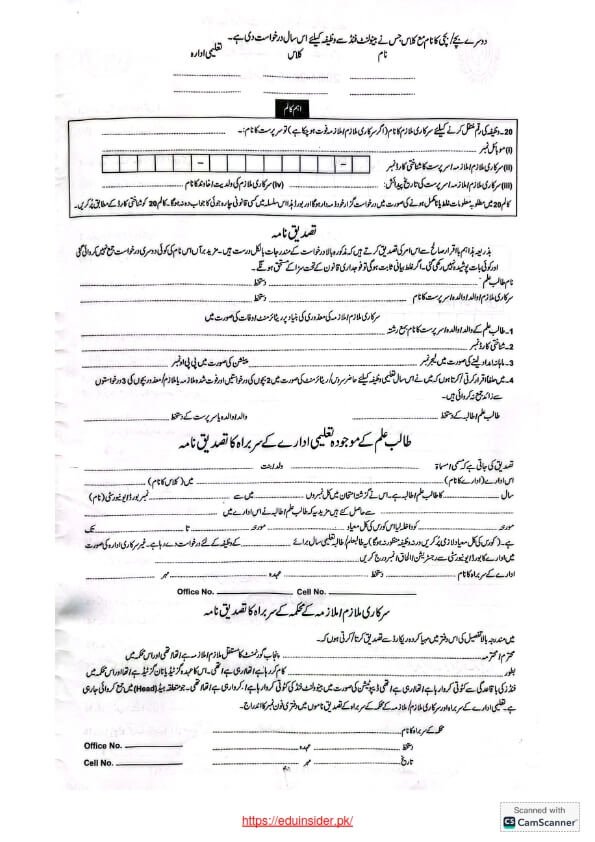 دوسرے بچے/بچی کا نام مع کلاس جس نے بینولنٹ فنڈ سے وظیفہ کیلئے اس سال درخواست دی ہے۔
نام کلاس تعلیمی ادارہ
اہم کالم
20۔ وظیفہ کی رقم منتقل کرنے کیلئے سرکاری ملازم/ملازمہ کا نام (اگر سرکاری ملازم/ملازمہ فوت ہو چکا ہے) تو سرپرست کا نام:۔
(i) موبائل نمبر
(ii) سرکاری ملازم/ملازمہ/سرپرست کا شناختی کارڈ نمبر
(iii) سرکاری ملازم/ملازمہ/سرپرست کی تاریخ پیدائش: (iv) سرکاری ملازم/ملازمہ کی ولدیت/خاوند کا نام
کالم 20 میں مطلوبہ معلومات غلط یا نامکمل ہونے کی صورت میں درخواست گزار خود ذمہ دار ہوگا اور بورڈ ہذا اس سلسلہ میں کسی قانونی چارہ جوئی کا جواب دہ نہ ہوگا۔ کالم 20 کو شناختی کارڈ کے مطابق پُر کریں۔
تصدیق نامہ
بذریعہ ہذا ہم باقرار صالح سے اس امر کی تصدیق کرتے ہیں کہ مذکورہ بالا درخواست کے مندرجات بالکل درست ہیں۔ مزید برآں اس نام کی کوئی دوسری درخواست جمع نہیں کروائی گئی
اور کوئی بات پوشیدہ نہیں رکھی گئی۔ اگر غلط بیانی ثابت ہوگی تو فوجداری قانون کے تحت سزا کے مستحق ہونگے۔
نام طالب علم دستخط
سرکاری ملازم/والد/والدہ/سرپرست کا نام دستخط
سرکاری ملازم/ملازمہ کی معذوری کی بنیاد پر ریٹائرمنٹ/وفات کی صورت میں
1۔ طالب علم کے والد/والدہ/سرپرست کا نام بمع رشتہ
2۔ شناختی کارڈ نمبر
3۔ ماہانہ امداد لینے کی صورت میں لیجر نمبر پینشن کی صورت میں پی پی او نمبر
4۔ میں حلفاً اقرار کرتی/کرتا ہوں کہ میں نے اس سال تعلیمی وظیفہ کیلئے حاضر سروس/ریٹائرمنٹ کی صورت میں 2 بچوں کی درخواستیں اور فوت شدہ ملازمہ یا ملازم/معذور بچوں کی 3 درخواستوں
سے زائد جمع نہ کروائی ہیں۔
طالب علم/طالبہ کے دستخط والد/والدہ یا سرپرست کے دستخط
طالب علم کے موجودہ تعلیمی ادارے کے سربراہ کا تصدیق نامہ
تصدیق کی جاتی ہے کہ مسمی/مسماۃ ولد/بنت
اس ادارے (ادارے کا نام) میں (کلاس کا نام)
سال کا طالب علم/طالبہ ہے۔ اس نے گزشتہ امتحان میں کل نمبروں میں سے نمبر بورڈ/یونیورسٹی (نام)
سے حاصل کئے ہیں مزید یہ کہ طالب علم/طالبہ نے اس ادارے میں
مورخہ کو داخلہ لیا اس کورس کی کل معیاد مورخہ تا تک
ہے۔ (کورس کی کل معیاد لازمی پُر کریں ورنہ وظیفہ منظور نہ ہوگا) یہ طالبعلم/طالبہ تعلیمی سال برائے کے وظیفہ کے لئے درخواست دے رہا ہے۔ غیر سرکاری ادارہ کی صورت
میں ادارے کا بورڈ/یونیورسٹی سے رجسٹریشن/الحاق نمبر درج کریں
ادارے کے سربراہ کا نام دستخط عہدہ مہر
Office No. Cell No.
سرکاری ملازم/ملازمہ کے محکمہ کے سربراہ کا تصدیق نامہ
میں مندرجہ بالا تفصیل کی اس دفتر میں مہیا کردہ ریکارڈ سے تصدیق کرتا/کرتی ہوں کہ۔
محترم/محترمہ پنجاب گورنمنٹ کا مستقل ملازم/ملازمہ ہے/تھا/تھی اور اس محکمہ میں
بطور کام کر رہا/رہی ہے/تھا/تھی۔ اس کا عہدہ گزٹیڈ یا نان گزٹیڈ ہے/تھا اور اس کی بینولنٹ
فنڈ کی باقاعدگی سے کٹوتی کروا رہا ہے/رہی ہے/تھا/تھی ڈیپوٹیشن کی صورت میں بینولنٹ فنڈ کی کٹوتی کروا رہا ہے/کروا رہی ہے/تھا/تھی۔ جو متعلقہ ہیڈ (Head) میں جمع کروائی جا رہی
ہے۔ تعلیمی ادارے کے سربراہ اور سرکاری ملازم/ملازمہ کے محکمہ کے سربراہ کے تصدیق ناموں میں دفتری فون نمبر کا اندراج۔
محکمہ کے سربراہ کا نام
دستخط عہدہ Office No.
تاریخ مہر Cell No.
https://eduinsider.pk/
Scanned with
CS CamScanner